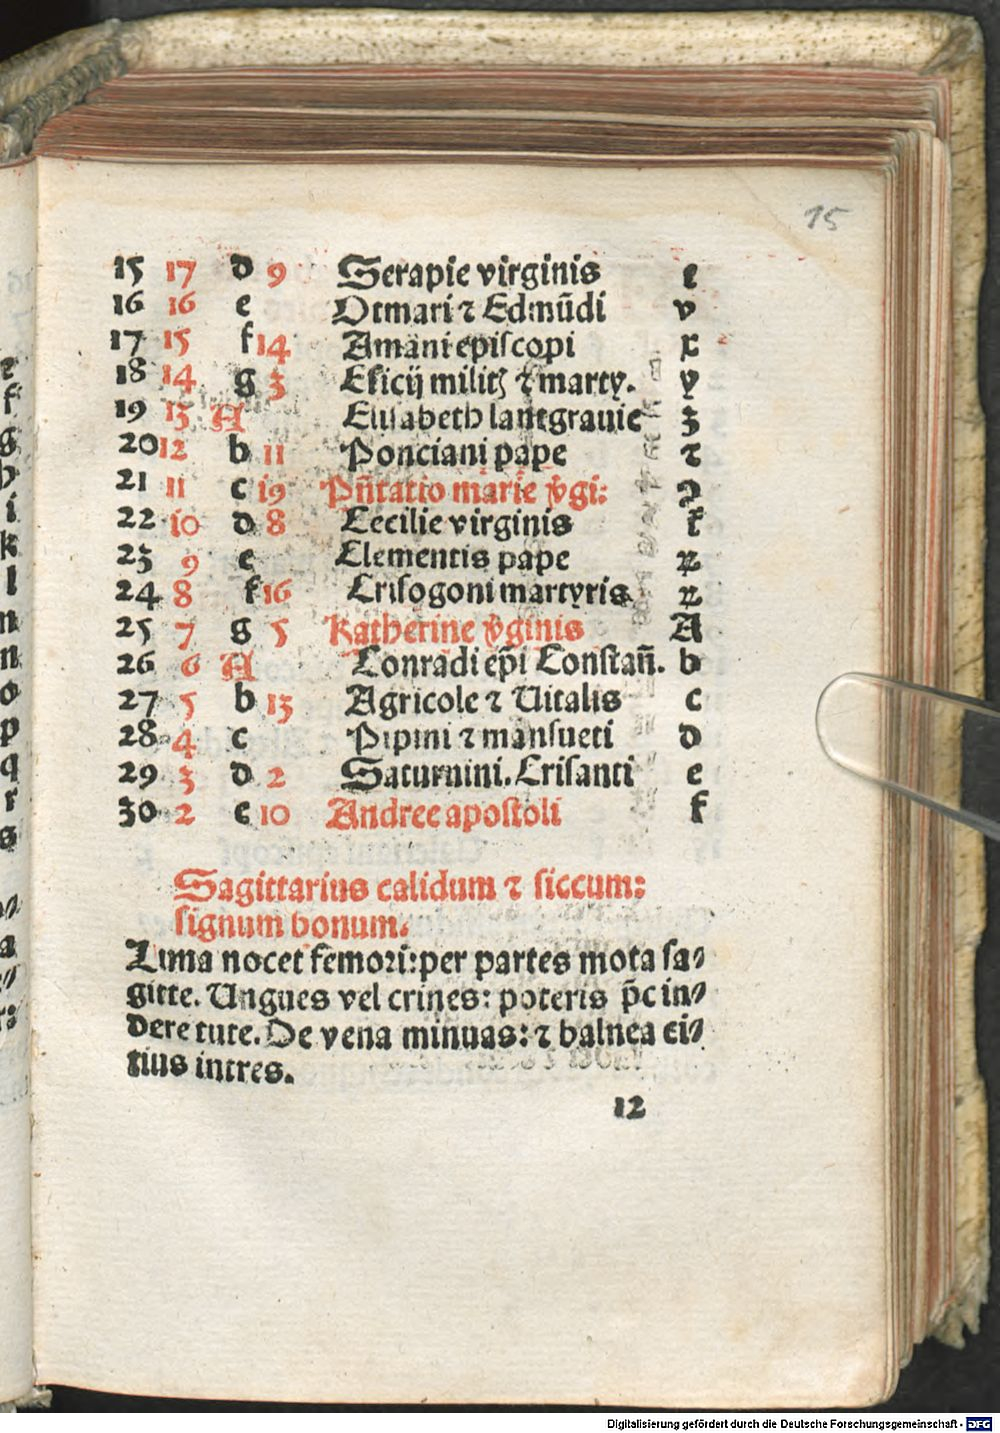 15
15 17 d 9 Serapie virginis e
16 16 e Otmari ⁊ Edmūdi v
17 15 f 14 Amāni episcopi x
18 14 g 3 Eficij militꝫ ⁊ marty. y
19 13 A Elisabeth lantgrauie z
20 12 b 11 Ponciani pape ⁊
21 11 c 19 Pñtatio marie v̄gi: ꝯ
22 10 d 8 Cecilie virginis
23 9 e Clementis pape
24 8 f 16 Crisogoni martyris
25 7 g 5 Katherine v̄ginis A
26 6 A Conradi ep̄i Constañ. b
27 5 b 13 Agricole ⁊ Uitalis c
28 4 c Pipini ⁊ mansueti d
29 3 d 2 Saturnini. Crisanti e
30 2 e 10 Andree apostoli f
Sagittarius calidum ⁊ siccum:
signum bonum.
Luna nocet femori: per partes mota sa⸗
gitte. Ungues vel crines: poteris p̄cin⸗
dere tute. De vena minuas: ⁊ balnea ci⸗
tius intres.
12
Digitalisierung gefördert durch die Deutsche Forschungsgemeinschaft - DFG